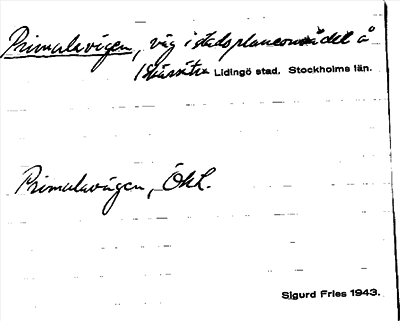 Primulavägen, väg i stadsplaneområdet å
Skärsätra Lidingö stad. Stockholms län.
Primulavägen, ÖhL.
Sigurd Fries 1943.